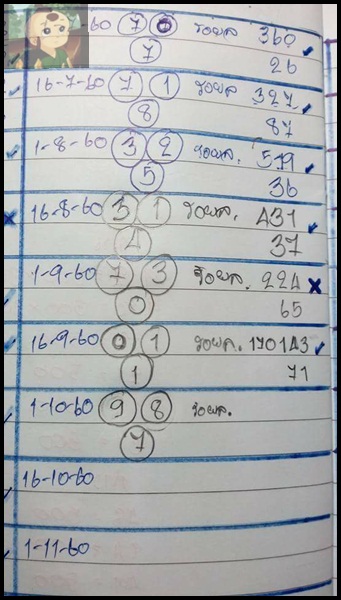 60 7 0 รอผล 360
7 26
16-7-60 7 1 รอผล 327
8 87
1-8-60 3 2 รอผล. 519
5 36
16-8-60 3 1 รอผล. 431
4 37
1-9-60 7 3 รอผล. 224
0 65
16-9-60 0 1 รอผล. 170143
1 71
1-10-60 9 8 รอผล.
7
16-10-60
1-11-60